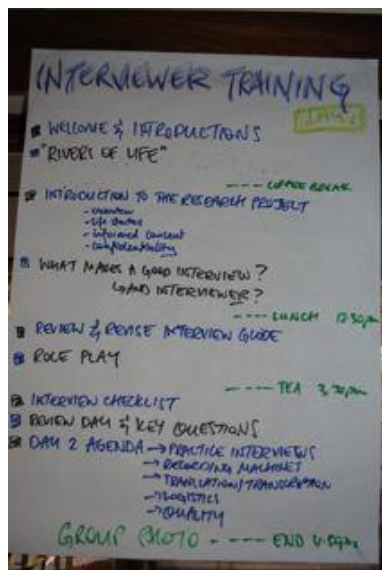 INTERVIEWER TRAINING
DAY 1
WELCOME & INTRODUCTIONS
"RIVERS OF LIFE"
---- COFFEE BREAK
INTRODUCTION TO THE RESEARCH PROJECT
- overview
- life stories
- informed consent
- confidentiality
WHAT MAKES A GOOD INTERVIEW?
↳ AND INTERVIEWER?
---- LUNCH 12.30pm
REVIEW & REVISE INTERVIEW GUIDE
ROLE PLAY
---- TEA 3.30pm
INTERVIEW CHECKLIST
REVIEW DAY & KEY QUESTIONS
DAY 2 AGENDA → PRACTICE INTERVIEWS
→ RECORDING MACHINES
→ TRANSLATION/TRANSCRIPTION
→ LOGISTICS
→ QUALITY
GROUP PHOTO ---- END